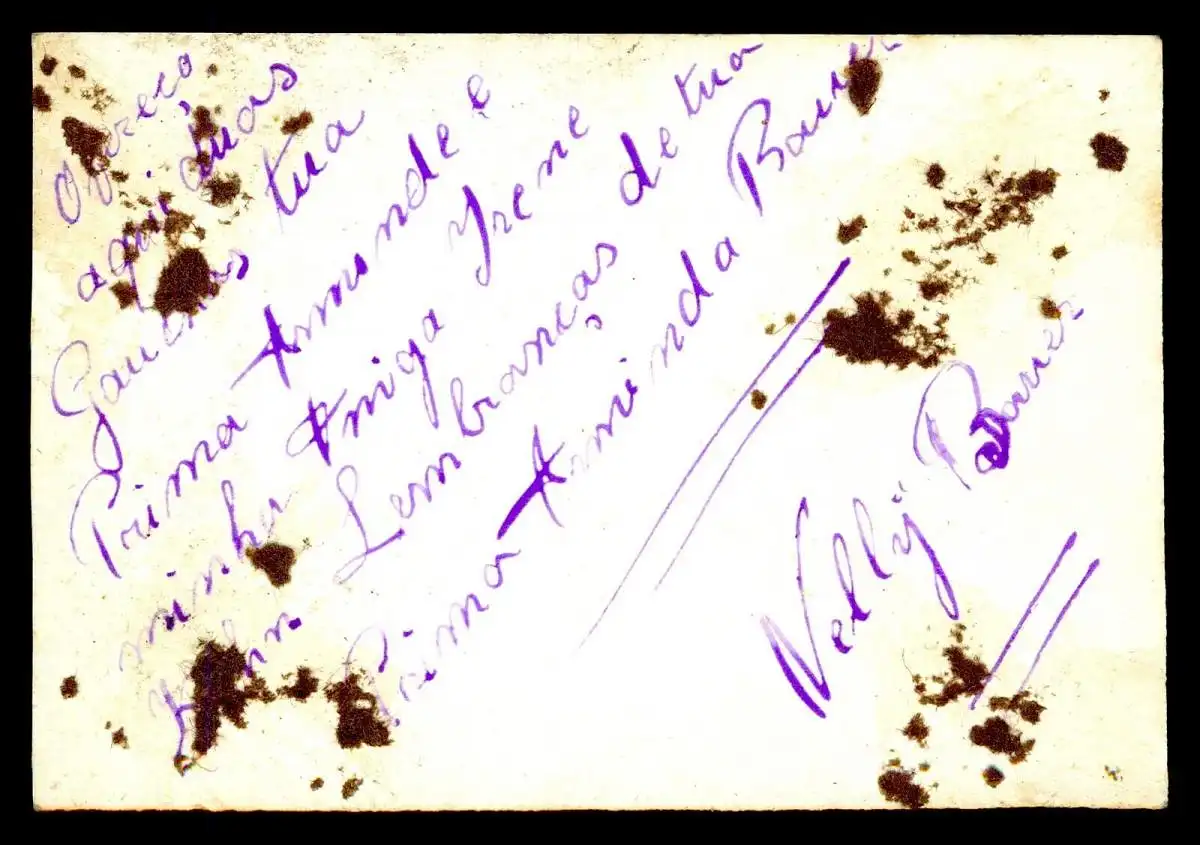 Ofereço
aqui duas
Gauchas tua
Prima Arminda e
minha Amiga Yrene
Lembranças de tua
Prima Arminda Bauer
Nelly Bauer